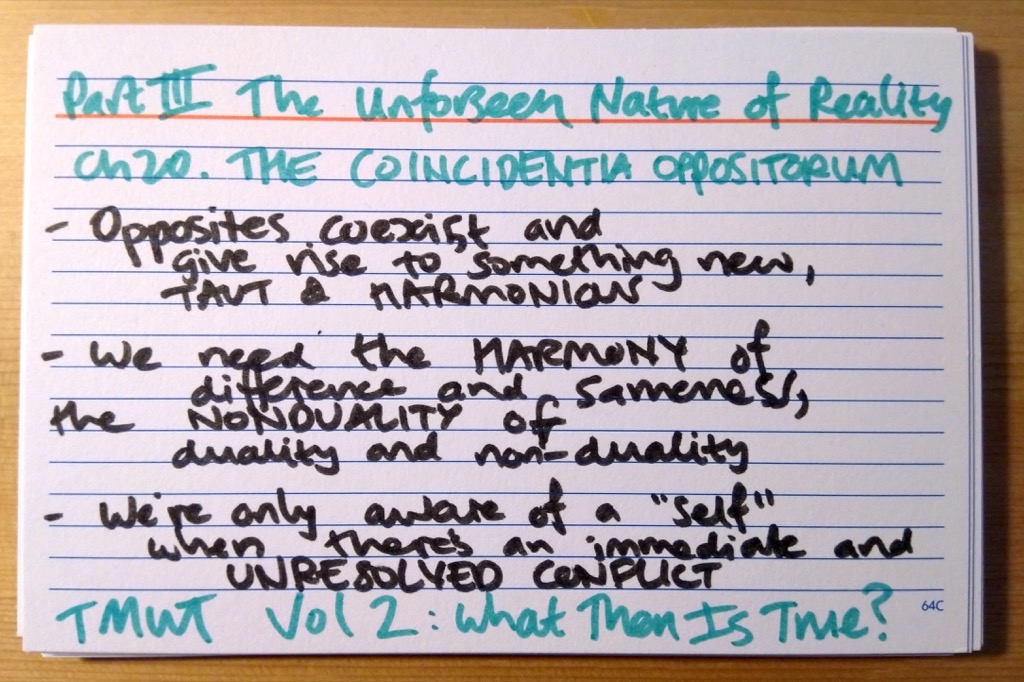 Part III The Unforseen Nature of Reality
Ch20. THE COINCIDENTIA OPPOSITORUM
- Opposites coexist and
give rise to something new,
TAUT & HARMONIOUS
- We need the HARMONY of
difference and sameness,
the NONDUALITY of
duality and non-duality
- We're only aware of a "self"
when there's an immediate and
UNRESOLVED CONFLICT
64C
TMWT Vol 2: What Then Is True?